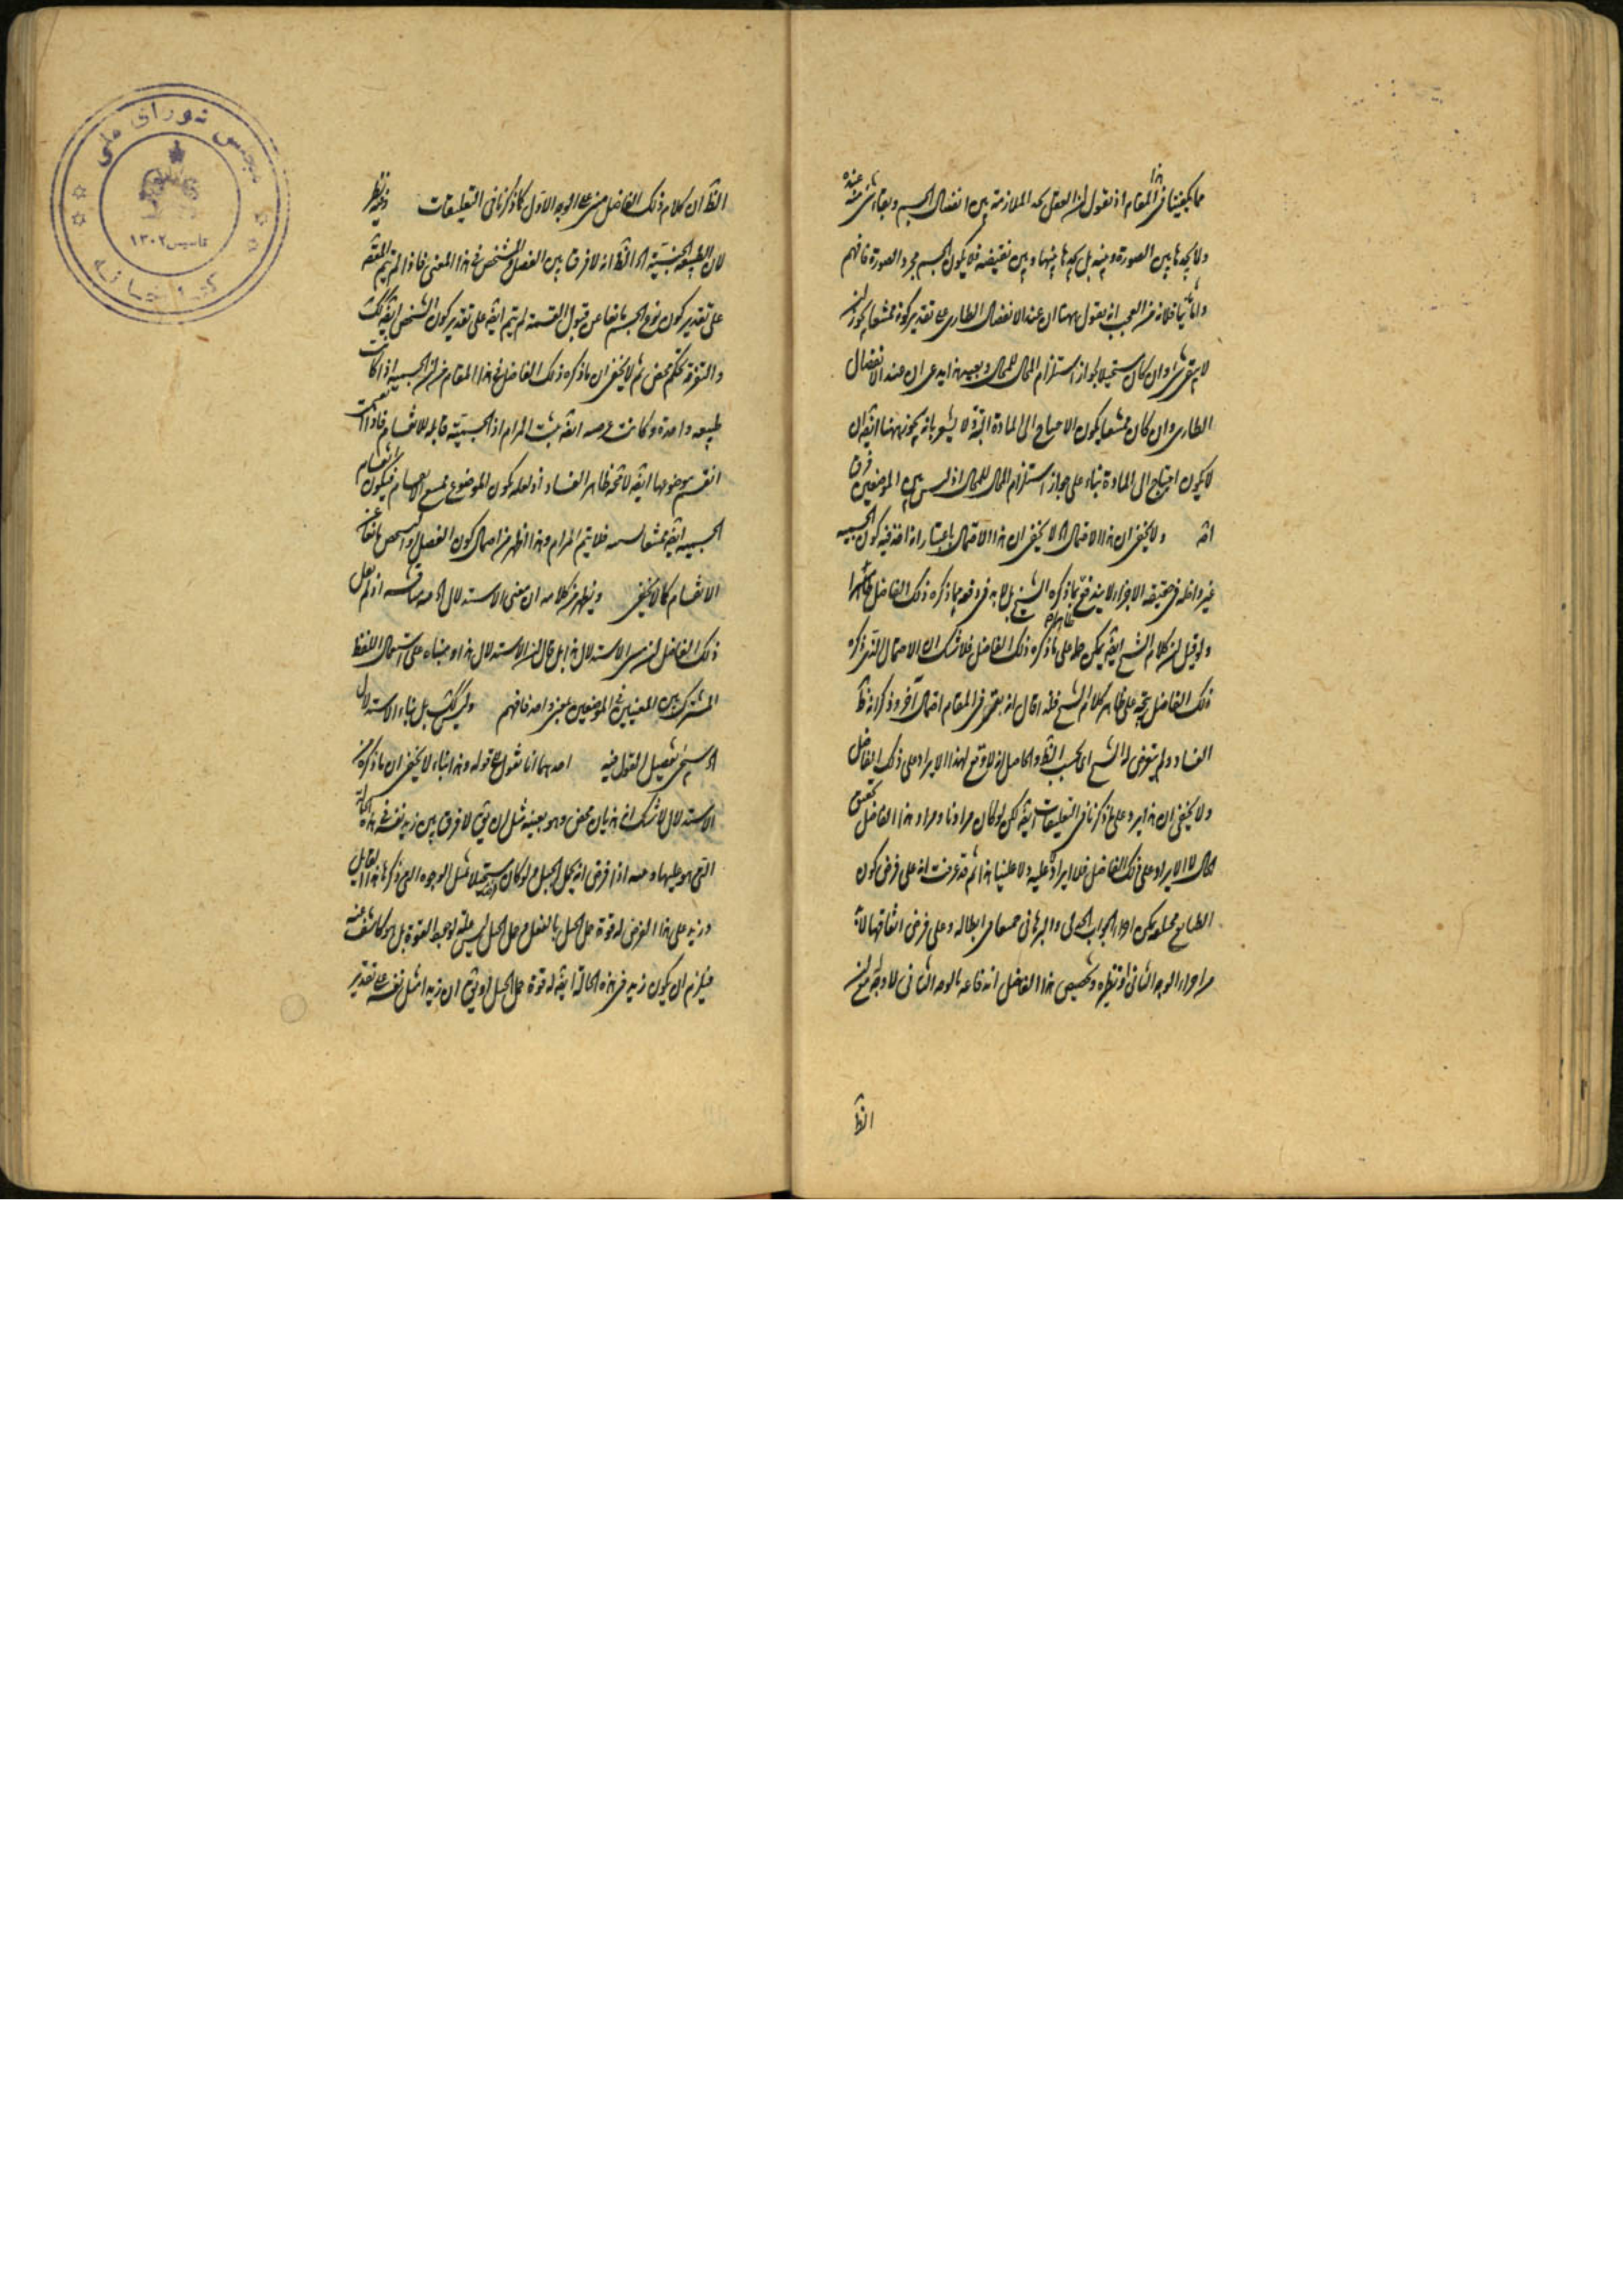 مما يكفينا في المقام اذ نقول ان العقل يجد الملازمة بين انفصال الجسم وبقاء شيء منه عنده
ولا يجدها بين الصورة ومنه بل يجدها بينها وبين نقيضه فلا يكون الجسم مجرد الصورة فافهم
واما ثانيا فلانه من العجب انه يقول ههنا ان عند الانفصال الطاري على تقدير كونه ممتنعا يجوز ان
لا يبقى شيء وان كان مستحيلا لجواز استلزام المحال للمحال وبعيد هذا يدعى ان عند الانفصال
الطاري وان كان ممتنعا يكون الاحتياج الى المادة البتة ولا يشعر بانه يجوز ههنا ايضا ان
لا يكون احتياج الى المادة بناء على جواز استلزام المحال للمحال اذ ليس بين الموضعين فرق
ولا يخفى ان هذا الاحتمال لا يخفى ان هذا الاحتمال باعتبار انه اخذ فيه كون الجسمية
غير داخلة في حقيقة الاجزاء لا يندفع بما ذكره الشيخ بل لا بد في دفعه بما ذكره ذلك الفاضل ظاهرا
ولو قيل ان كلام الشيخ ايضا يمكن حمله على ما ذكره ذلك الفاضل فلا شك ان الاحتمال الذي ذكره
ذلك الفاضل يتجه على ظاهر كلام الشيخ فلذا قال انه بقى في المقام احتمال آخر وذكر انه ظ
الفساد ولم يتعرض له الشيخ اي بحسب الظ والحاصل انه لا وقع لهذا الايراد على ذلك الفاضل
ولا يخفى ان هذا يرد على ما ذكرنا في التعليقات ايضا لكن لو كان مرادنا ومراد هذا الفاضل تحقيق
الحال لا الايراد على ذلك الفاضل فلا ايراد عليه ولا علينا هذا ثم قد عرفت انه على فرض كون
الطبايع مختلفة يمكن اجراء الجواب الجدلي والبرهاني جميعا في ابطاله وعلى فرض اتفاقها لا بد
من اجراء الوجه الثاني او نظيره وتخصيص هذا الفاضل اندفاعه بالوجه الثاني لا وجه له مع ان
الظ
الظ ان كلام ذلك الفاضل مبني على الوجه الاول كما ذكرنا في التعليقات وفيه نظر
لان الطبيعة الجنسية الخ الظ انه لا فرق بين الفصل والمشخص في هذا المعنى فاذا لم يتم المقدمة
على تقدير كون نوع الجسم مانعا عن قبول القسمة لم يتم ايضا على تقدير كون الشخص ايضا كذلك
والتفرقة تحكم محض ثم لا يخفى ان ما ذكره ذلك الفاضل في هذا المقام من ان الجسمية اذا كانت
طبيعة واحدة وكانت عرضية ايضا يثبت المرام اذ الجسمية قابلة للانقسام فاذا انقسمت
انقسم موضوعها ايضا لا محة ظاهر الفساد اذ لعله يكون الموضوع ممتنع الانقسام فيكون انقسام
الجسمية ايضا ممتنعا بسببه فلا يتم المرام وهذا اظهر من احتمال كون الفصل او الشخص مانعا عن
الانقسام كما لا يخفى ويظهر من كلامه ان معنى الاستدلال الخ فيه مناقشة اذ لم يقل
ذلك الفاضل ان معنى الاستدلال هذا بل قال ان الاستدلال هذا ومبناه على استعمال اللفظ
المشترك بين المعنيين في الموضعين بمعنى واحد فافهم وليس كذلك بل بناء الاستدلال
الخ سيجيء تفصيل القول فيه احدهما انا نقول الى قوله وهذا بناء لا يخفى ان ما ذكره من
الاستدلال لا شك انه هذيان محض وهو بعينه مثل ان يق لا فرق بين زيد نفسه في هذه الحالة
التي هو عليها وعنه اذا فرض انه يحمل الجبل مع لو كان مستحيلا بمثل الوجوه التي ذكرها هذا القايل
وزيد على هذا الفرض له قوة حمل الجبل بالفعل وحمل الجبل ليس علة لوجود القوة بل هو كاشف عنه
فيلزم ان يكون زيد في هذه الحالة ايضا له قوة حمل الجبل او يق ان زيدا مثل نفسه على تقدير
مجلس شورای ملی
تاسیس ۱۳۰۲
کتابخانه